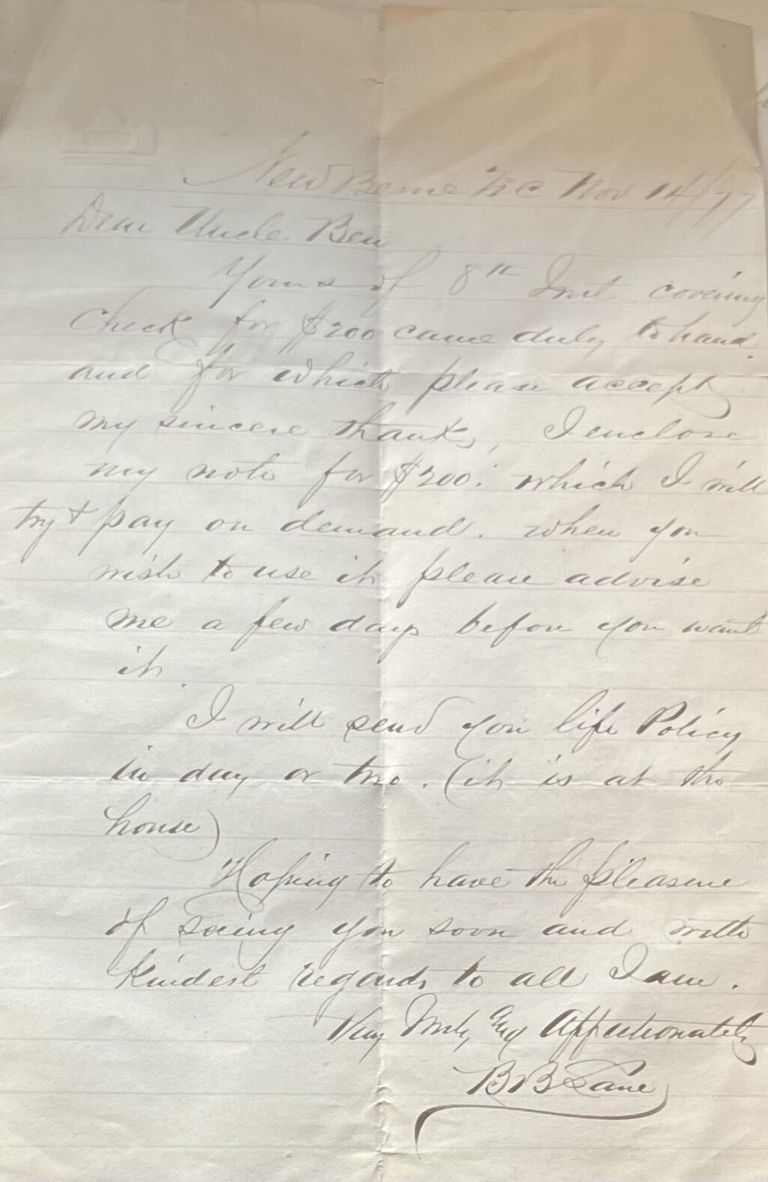 New Berne NC Nov 14/77
Dear Uncle Ben
Yours of 8th Inst covering
check for $200 came duly to hand.
and for which please accept
my sincere thanks, I enclose
my note for $200. which I will
try & pay on demand. when you
wish to use it please advise
me a few days before you want
it.
I will send you life Policy
in day or two. (it is at the
house)
Hoping to have the pleasure
of seeing you soon and with
kindest regards to all I am.
Very Truly and Affectionately
B B Lane